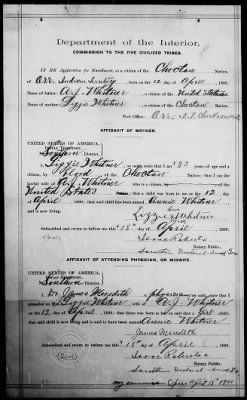 Department of the Interior,
COMMISSION TO THE FIVE CIVILIZED TRIBES.
IN RE Application for Enrollment, as a citizen of the Choctaw Nation,
of Orr, Indian Territory, born on the 12 day of April, 1899.
Name of father: A. J. Whitner a citizen of the United States
Name of mother: Lizzie Whitner a citizen of the Choctaw Nation.
Post Office: Orr, I.T.
AFFIDAVIT OF MOTHER.
UNITED STATES OF AMERICA,
Indian Territory,
Southern District.
I, Lizzie Whitner, on oath state that I am 22 years of age and a
citizen, by blood of the Choctaw Nation; that I am the
lawful wife of A. J. Whitner, who is a citizen of the
United States, that a child was born to me on 12
day of April, 1899; that said child has been named Annie Whitner,
and is now living.
Lizzie Whitner
Subscribed and sworn to before me this 15 day of April 1899.
Notary Public.
AFFIDAVIT OF ATTENDING PHYSICIAN, OR MIDWIFE.
UNITED STATES OF AMERICA,
Indian Territory,
Southern District.
I, Dr. James Meredith, a physician, on oath, state that I
attended on Lizzie Whitner, wife of A. J. Whitner
on the 12 day of April, 1899; that there was born to her a girl
child; that said child is now living and is said to have been named Annie Whitner
James Meredith
Subscribed and sworn to before me this 15 day of April 1899.
Notary Public.
April 15 1901